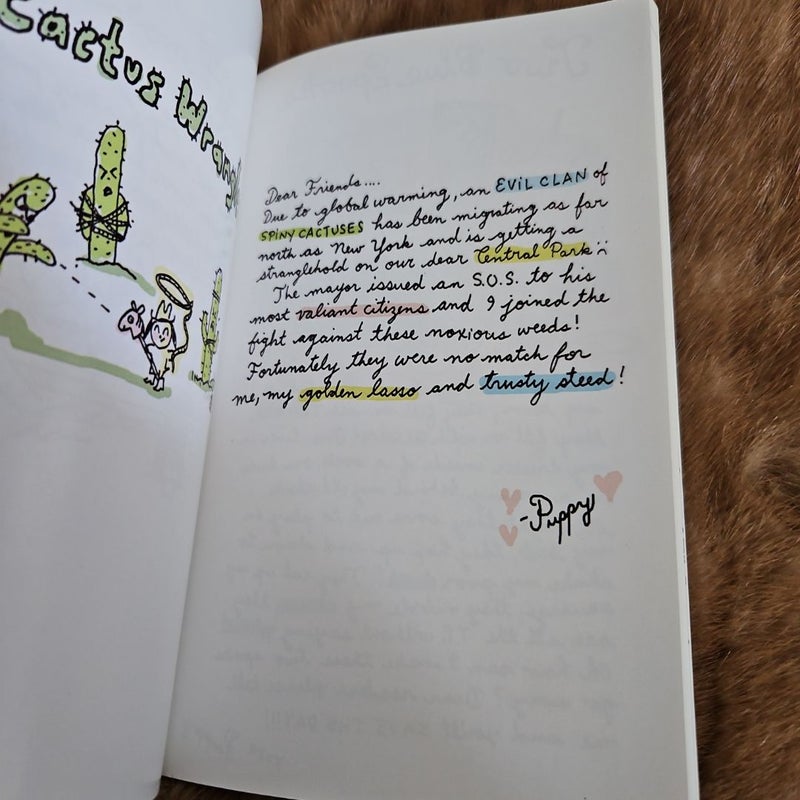 Cactus Wrang
Dear Friends....
Due to global warming, an EVIL CLAN of
SPINY CACTUSES has been migrating as far
north as New York and is getting a
stranglehold on our dear Central Park
The mayor issued an S.O.S. to his
most valiant citizens and I joined the
fight against these noxious weeds!
Fortunately they were no match for
me, my golden lasso and trusty steed!
-Puppy